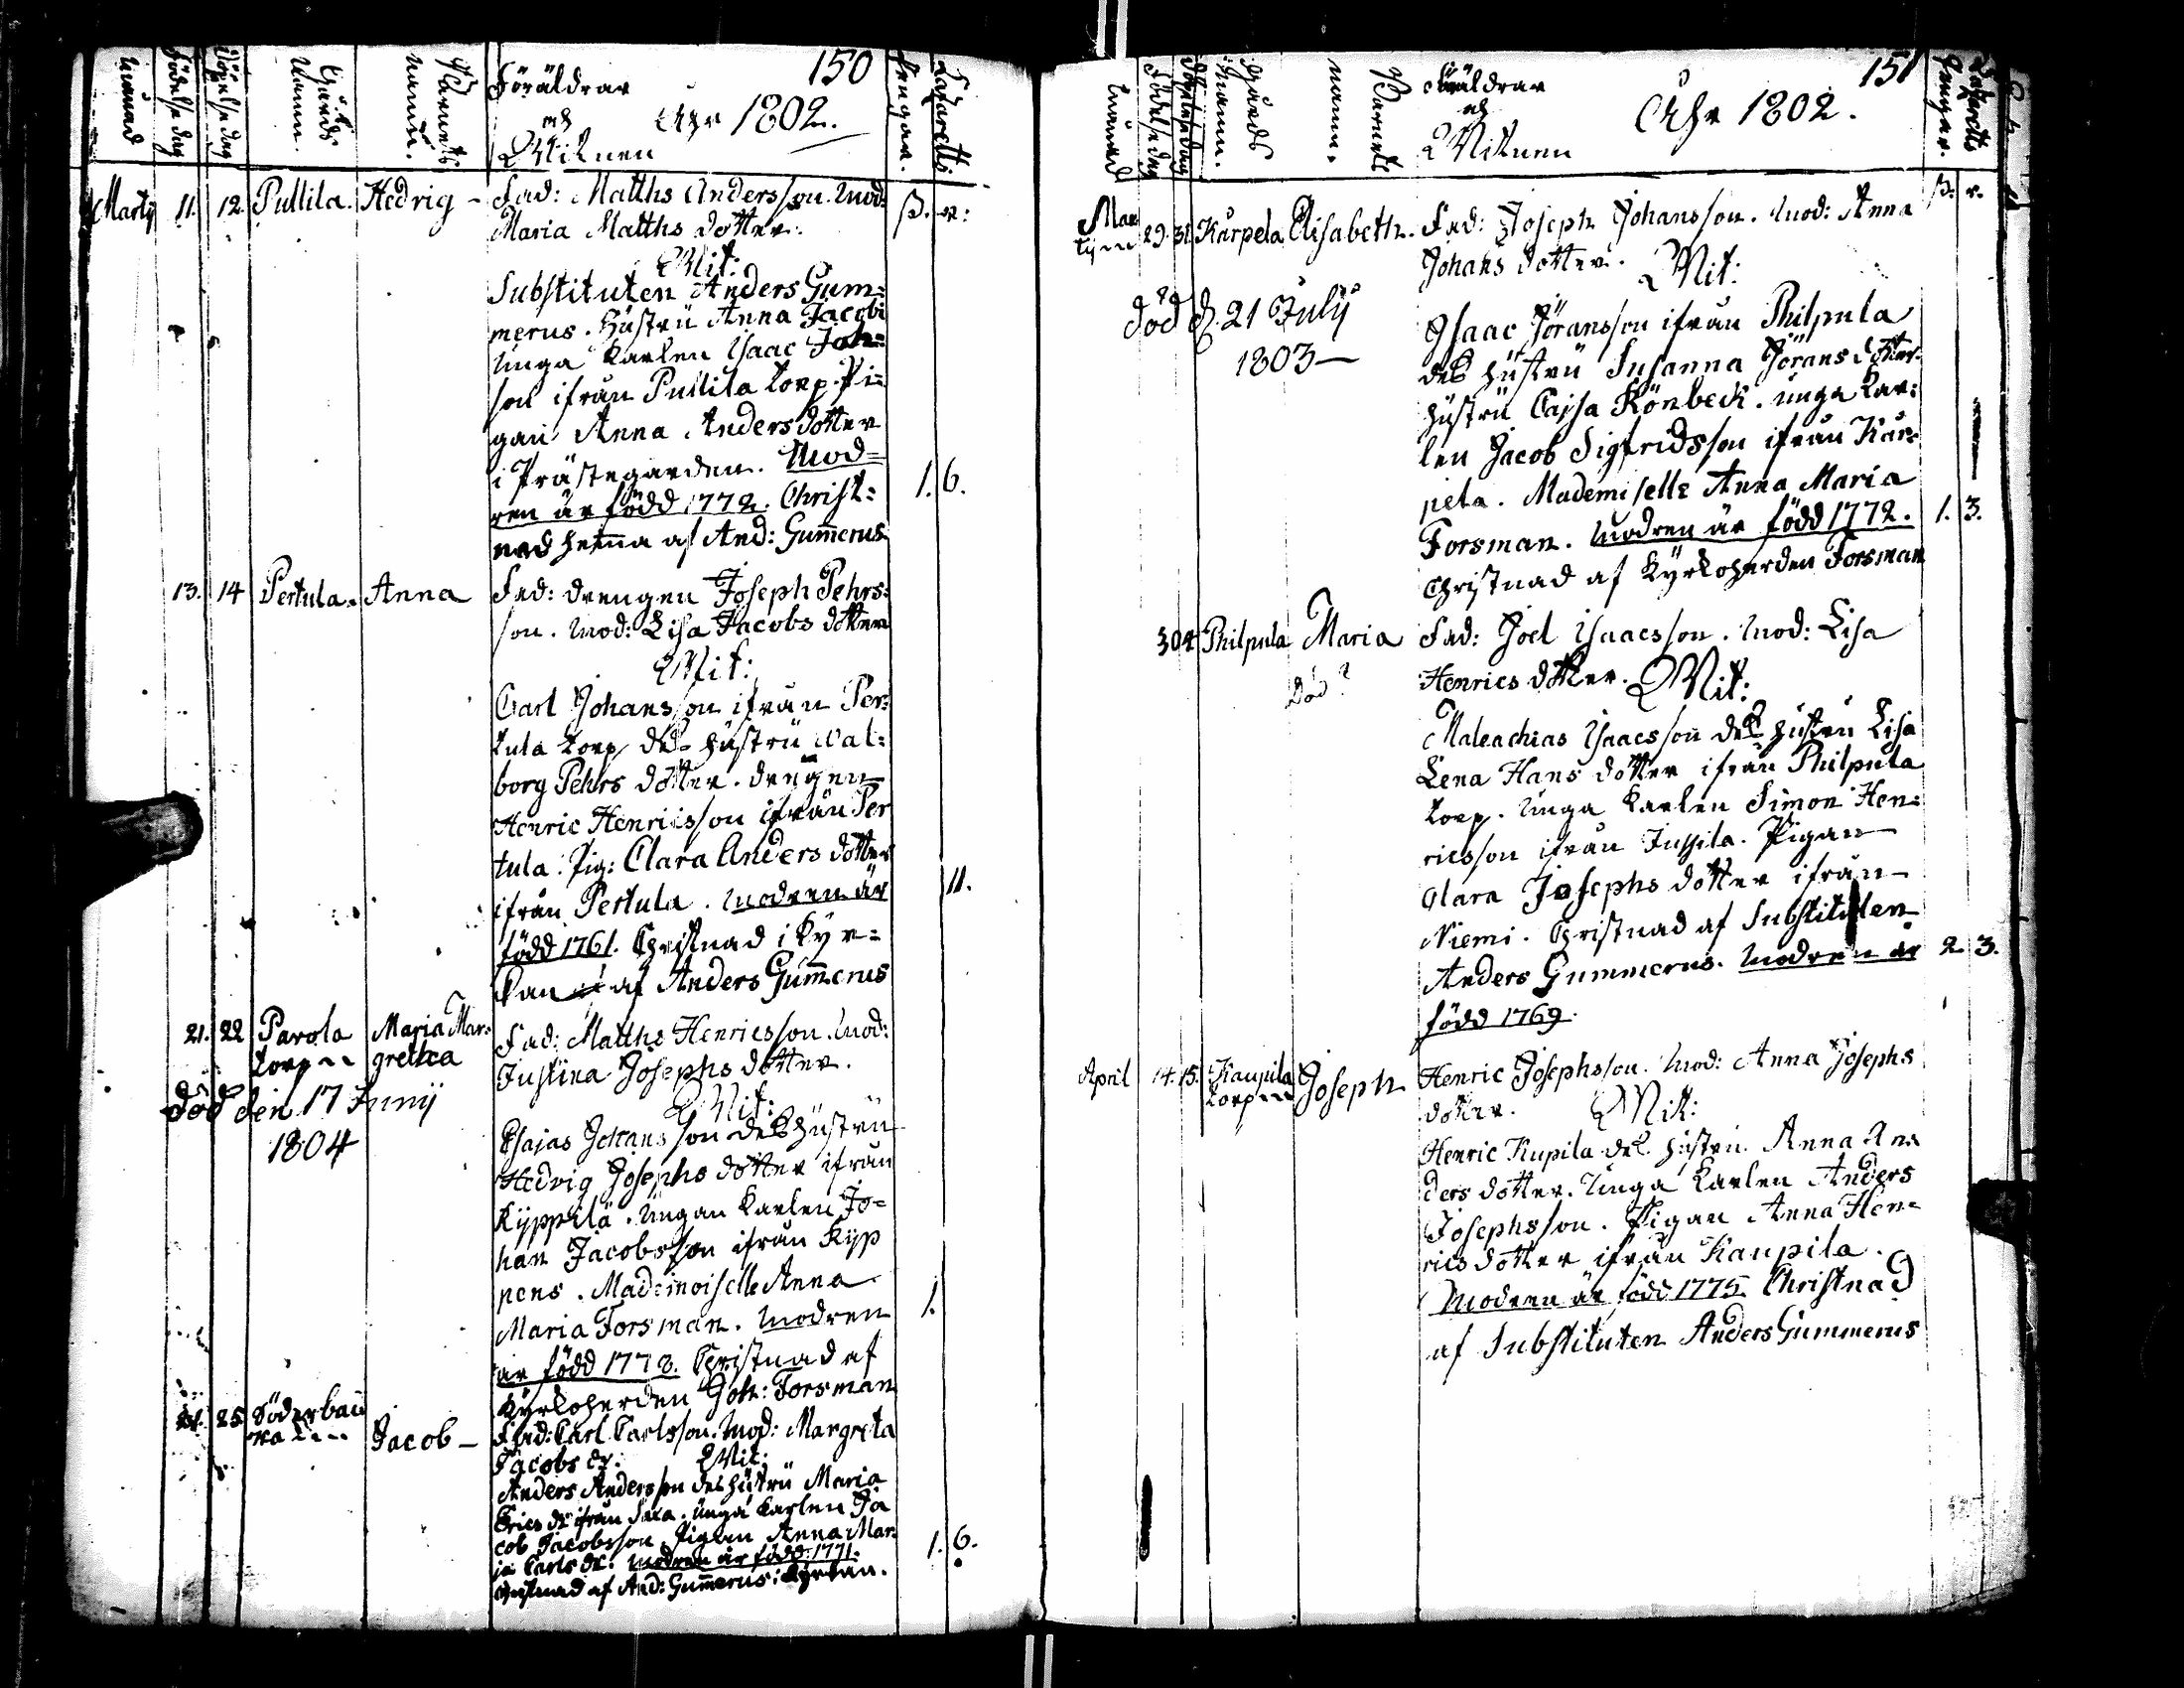 150
månad
Födelse dag
Döpelse dag
Gårds namn.
Barnets namn.
Föräldrar
och
Witnen
Åhr 1802.
Lazaretts
Pengar.
Marty 11. 12. Pullila. Hedvig - Fad: Matths Andersson. Mod:
Maria Matths dotter.
ß. r:
Wit:
Substituten Anders Gum=
merus. Hustru Anna Jacobi
Unga Karlen Isaac Joh=
son ifrån Pullila torp. Pi=
gan Anna Anders dotter
i Prästegården. Mod=
ren är född 1772. Christ=
1. 6.
nad hema af And: Gumerus
13. 14 Pertula. Anna Fad: drengen Joseph Pehrs=
son. Mod: Lisa Jacobs dotter
Wit:
Carl Johansson ifrån Per=
tula torp des hustru Wal=
borg Pehrs dotter. drengen
Henric Henricsson ifrån Per
tula. Pig: Clara Anders dotter
ifrån Pertula. Modren är
11.
född 1761. Christnad i Kyr=
kan af Anders Gumerus
21. 22 Parola torp Maria Mar=
gretha
Fad: Matths Henricsson. Mod:
Justina Josephs dotter.
död den 17 Junij
1804
Wit:
Esajas Johansson des hustru
Hedvig Josephs dotter ifrån
Kyppilä. Ungan Karlen Jo=
han Jacobsson ifrån Kyp
pens. Mademoiselle Anna
Maria Forsman. Modren
1.
är född 1778. Christnad af
Kyrkoherden Joh: Forsman
24. 25 Jacob - Fad: Carl Carlsson. Mod: Margreta
Jacobs dr. Wit:
Anders Andersson des hustru Maria
Erics dr ifrån Unga Karlen Ja
cob Jacobsson Pigan Anna Mar=
ja Carls dr: Modren är född 1771.
1. 6.
Christnad af And: Gumerus i Kyrkan.
151
månad
Födelse dag
Döpelse dag
Gårds namn.
Barnets namn.
Föräldrar
och
Witnen
Åhr 1802.
Lazaretts
Pengar.
ß. r.
Mar
tij 29. 31. Karpela Elisabeth. Fad: Joseph Johansson. Mod: Anna
Johans dotter. Wit:
död d. 21 July
1803 —
Isaac Jöransson ifrån Philpula
des hustru Susanna Jörans dotter.
hustru Cajsa Rönbeck. Unga Kar=
len Jacob Sigfridsson ifrån Kar=
pela. Mademiselle Anna Maria
Forsman. Modren är född 1772.
1. 3.
Christnad af Kyrkoherden Forsman
30 4 Philpula Maria Fad: Joel Isaacsson. Mod: Lisa
död?
Henrics dotter. Wit:
Maleachias Isaacsson des hustru Lisa
Lena Hans dotter ifrån Philpula
torp. Unga Karlen Simon Hen=
ricsson ifrån Jussila. Pigan
Clara Josephs dotter ifrån
Niemi. Christnad af Substituten
Anders Gummerus. Modren är
2 3.
född 1769.
April 14. 15. Kaupila
torp Joseph
Henric Josephsson. Mod: Anna Josephs
dotter. Wit:
Henric Kupila des hustru Anna An=
ders dotter. Unga Karlen Anders
Josephsson. Pigan Anna Hen=
rics dotter ifrån Kaupila.
Modren är född 1775. Christnad
af Substituten Anders Gummerus